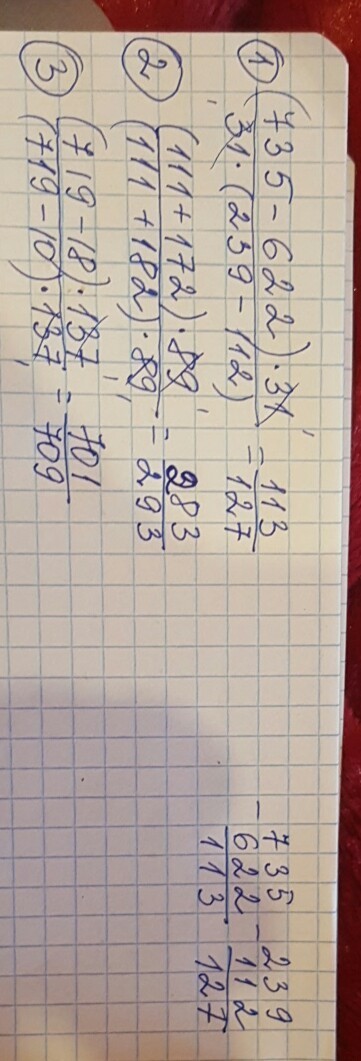 1 (735-622)·31
31·(239-112) = 113
127
2 (111+172)·89
(111+182)·89 = 283
293
3 (719-18)·137
(719-10)·137 = 701
709
- 735
622
113
- 239
112
127